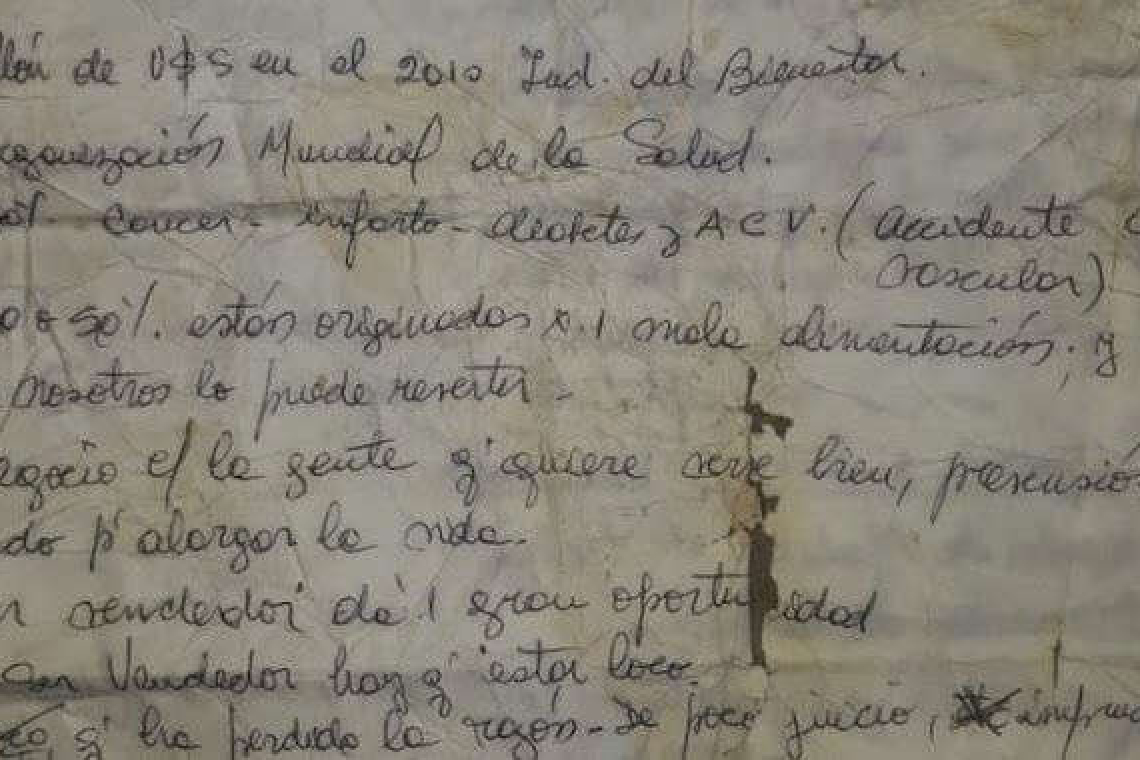 llón de U$S en el 2010 Ind. del Bienestar.
rganización Mundial de la Salud.
Cancer - infarto - diabetes y A C V. (accidente c
vascular)
0 o 50%. están originadas x. 1 mala alimentación; y
nosotros lo puede reverter -
egocio c/ la gente q' quiere verse bien, prevensió
do p' alargar la vida.
n vendedor da 1 gran oportunidad
Ser Vendedor hay q' estar loco.
q' ha perdido la razón - De poco juicio, impru